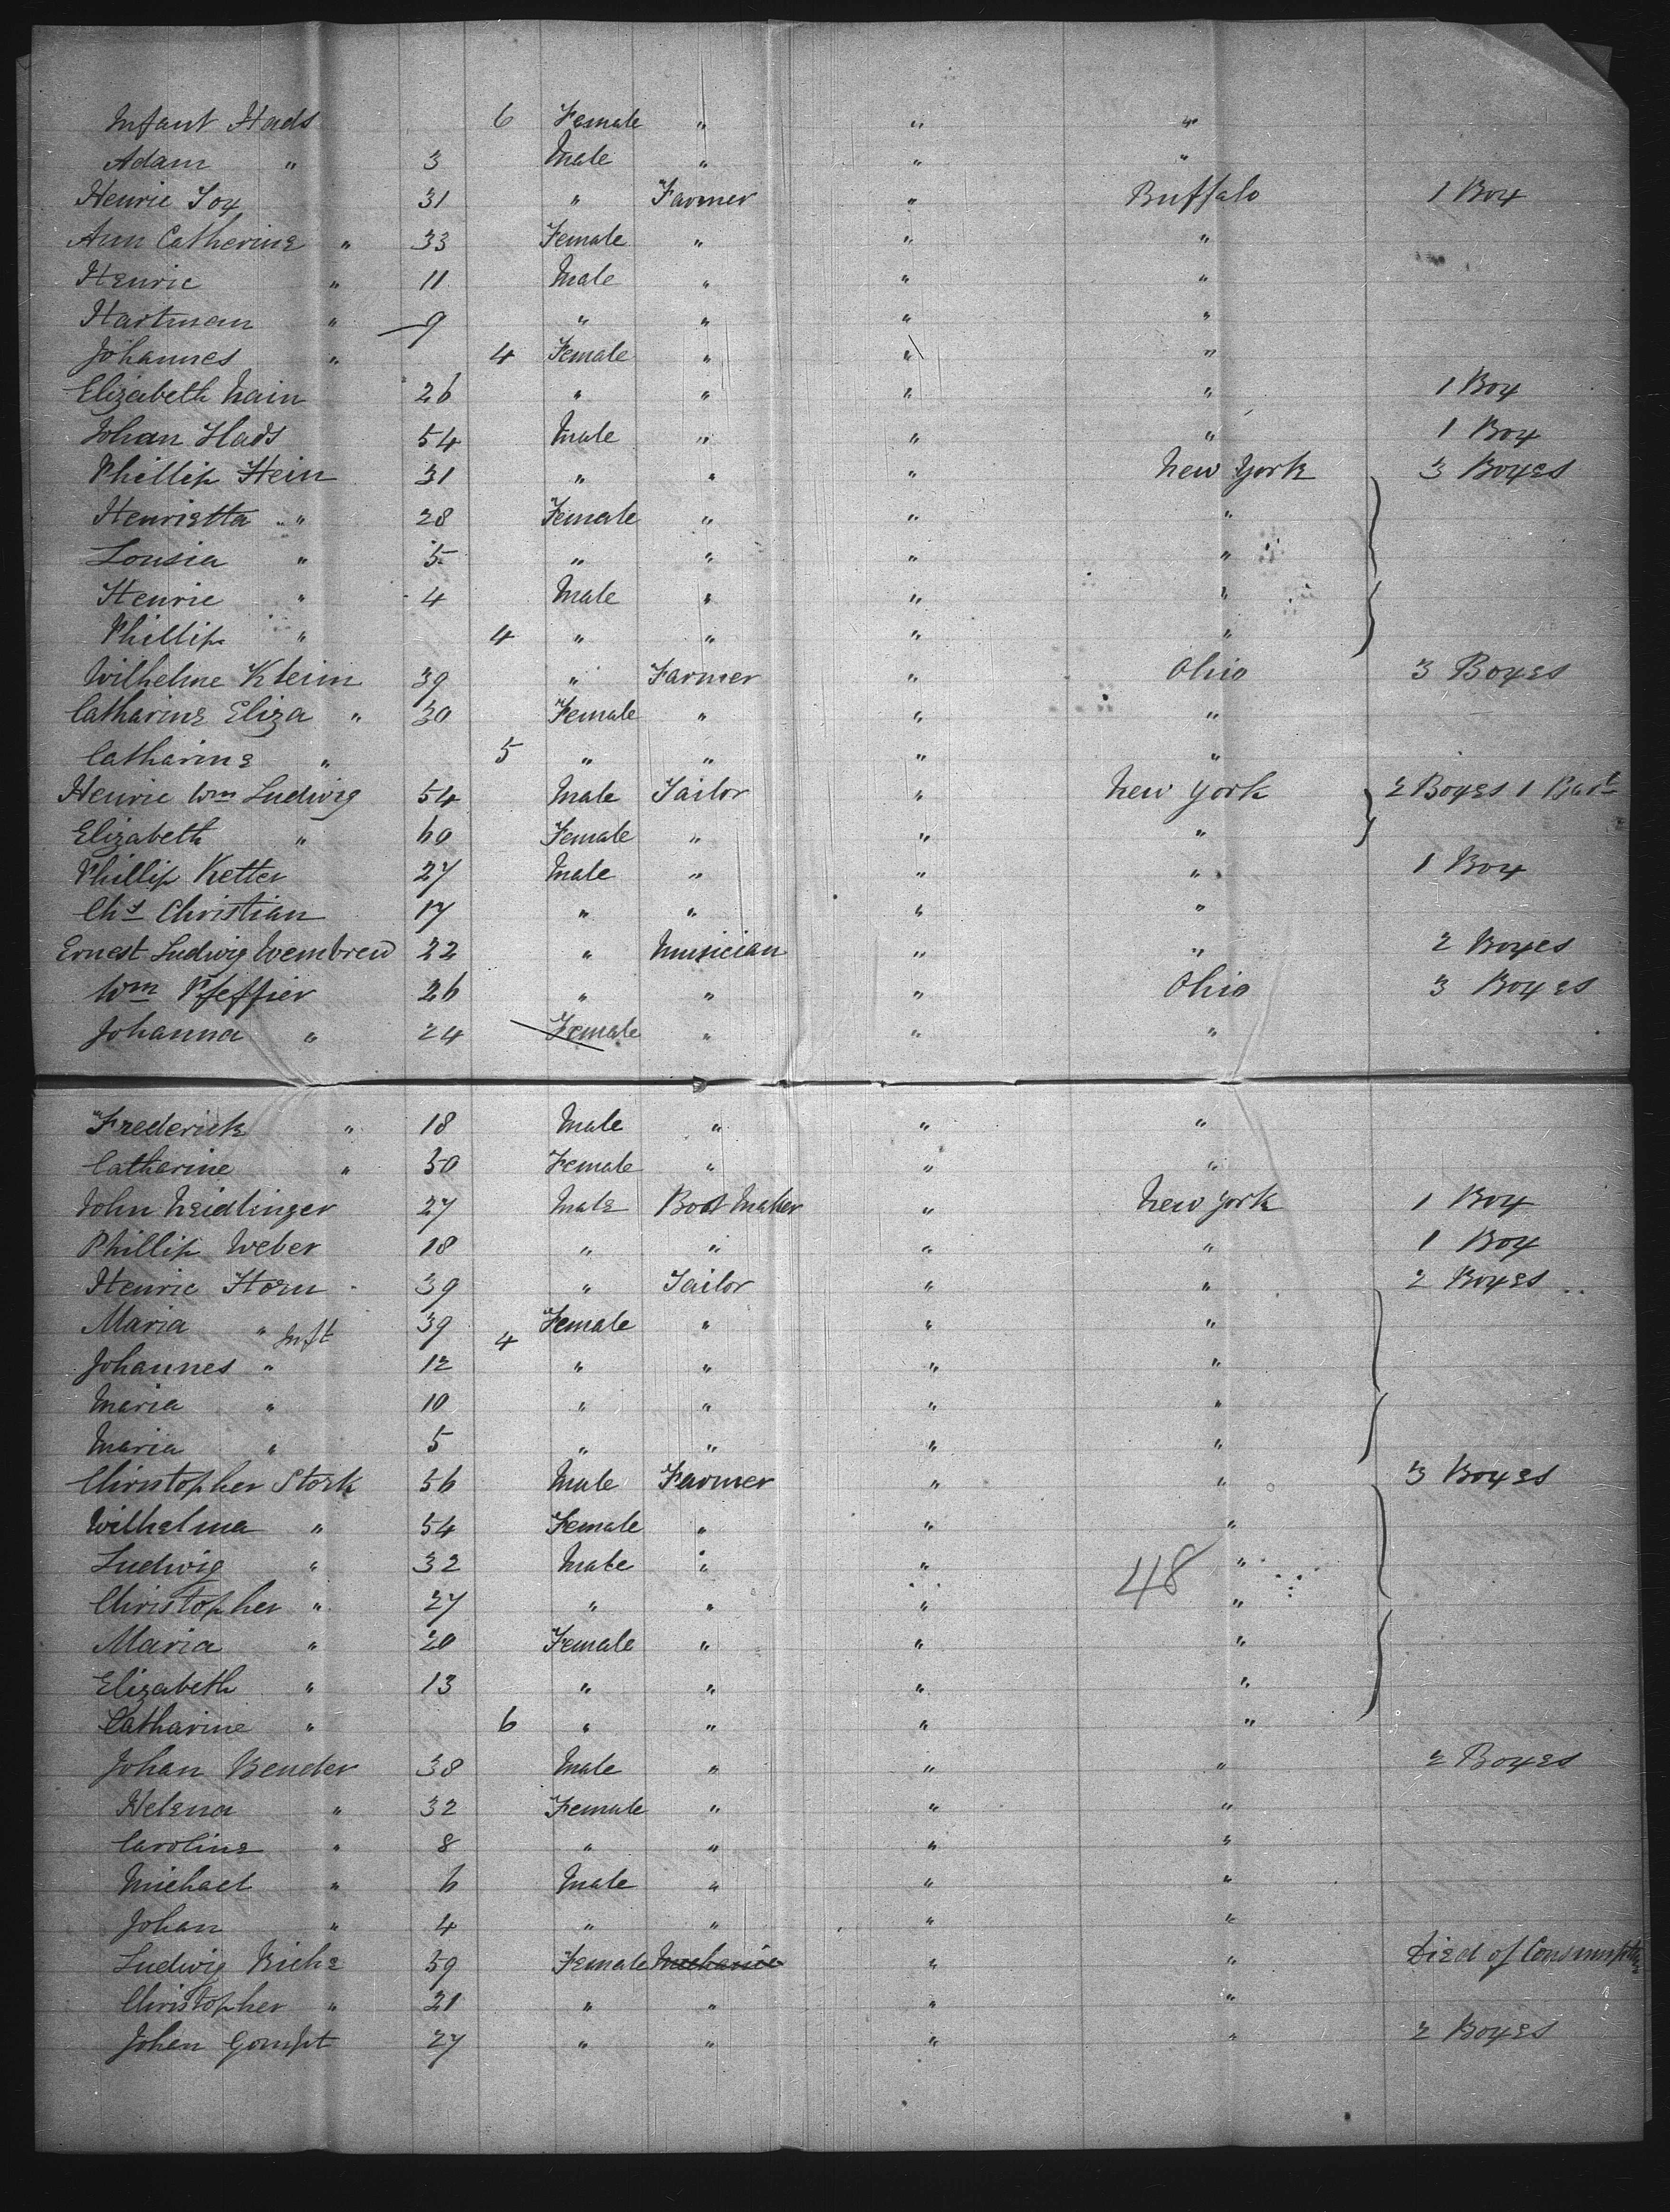 Infant Hads 6 Female " " "
Adam " 3 Male " " "
Henrie Fox 31 " Farmer " Buffalo 1 Box
Ann Catherine " 33 Female " " "
Henrie " 11 Male " " "
Hartman " 9 " " " "
Johannes " 4 Female " " "
Elizabeth Nain 26 " " " " 1 Box
Johan Hads 54 Male " " " 1 Box
Phillip Hein 31 " " " New York 3 Boxes
Henrietta " 28 Female " " "
Lousia " 5 " " " "
Henrie " 4 Male " " "
Phillip " 4 " " " "
Wilhelme Kleim 39 " Farmer " Ohio 3 Boxes
Catharine Eliza " 30 Female " " "
Catharine " 5 " " " "
Henrie Wm Ludwig 54 Male Tailor " New York 2 Boxes 1
Elizabeth " 60 Female " " "
Phillip Ketter 27 Male " " " 1 Box
Chs Christian 17 " " " "
Ernest Ludwig 22 " Musician " " 2 Boxes
Wm Pfeffier 26 " " " Ohio 3 Boxes
Johanna " 24 Female " " "
Frederick " 18 Male " " "
Catherine " 50 Female " " "
John Neidlinger 27 Male Boot Maker " New York 1 Box
Phillip Weber 18 " " " " 1 Box
Henrie Horn 39 " Tailor " " 2 Boxes
Maria " 39 Female " " "
Inft 4
Johannes " 12 " " " "
Maria " 10 " " " "
Maria " 5 " " " "
Christopher Stork 56 Male Farmer " " 3 Boxes
Wilhelma " 54 Female " " "
Ludwig " 32 Male " " "
48
Christopher " 27 " " " "
Maria " 20 Female " " "
Elizabeth " 13 " " " "
Catharine " 6 " " " "
Johan Bender 38 Male " " " 2 Boxes
Helena " 32 Female " " "
Caroline " 8 " " " "
Michael " 6 Male " " "
Johan " 4 " " " "
Ludwig 59 Female Mechanic " " Died of Consumption
Christopher " 21 " " " "
Johan Gompt 27 " " " " 2 Boxes